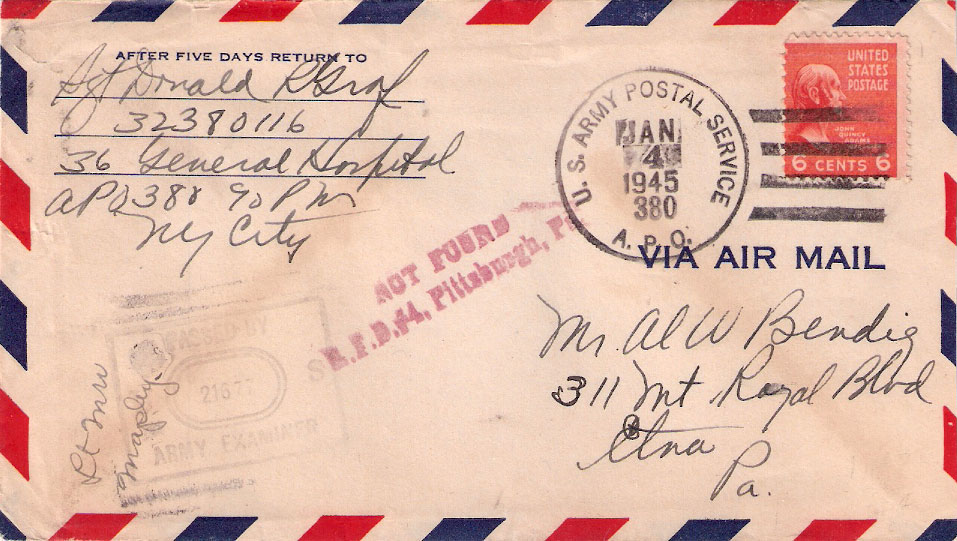 AFTER FIVE DAYS RETURN TO
Sgt Donald R Graf
32380116
36 General Hospital
APO 388 % PM
NY City
U. S. ARMY POSTAL SERVICE
JAN
4
1945
380
A. P. O.
UNITED
STATES
POSTAGE
JOHN
QUINCY
ADAMS
6 CENTS 6
VIA AIR MAIL
NOT FOUND
R.F.D.#4, Pittsburgh, Pa
Mr. Al W Bendig
311 Mt Royal Blvd
Etna
Pa.
PASSED BY
ARMY EXAMINER